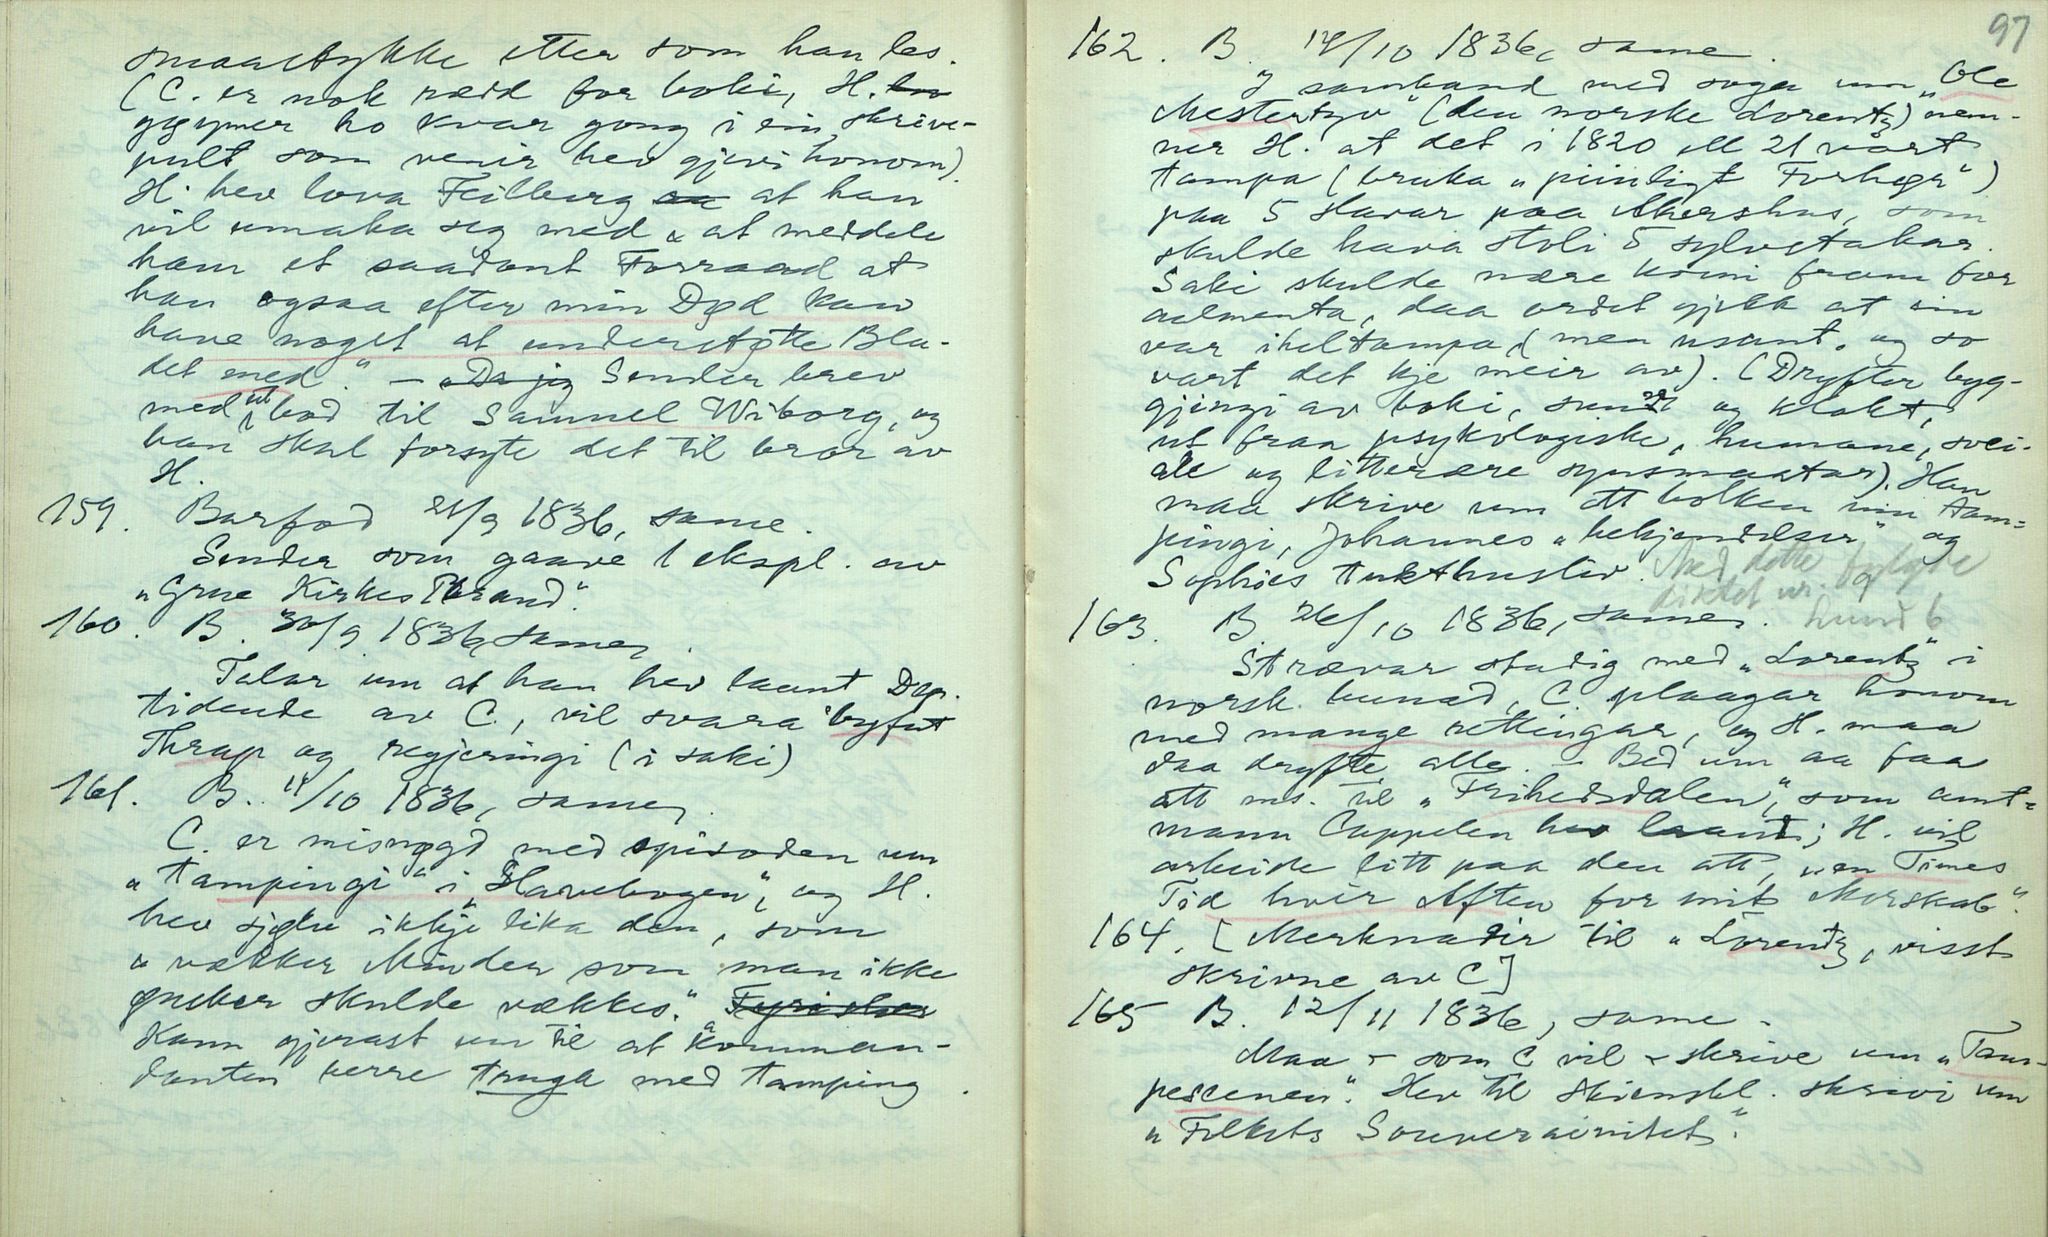 smaastykke etter som han les.
(C. er nok rædd for boki, H. hev
gøymer ho kvar gong i ein skrive-
pult som venir hev gjevi honom).
H. hev lova Feilberg aa at han
vil umaka seg med "at meddele
ham et saadant Forraad at
han ogsaa efter min Død kan
have noget at understøtte Bla-
det med." — Da jeg Sender brev
med bod til Samuel Wiborg, og
han skal forsyte det til bror av
H.
159. Barfod 21/9 1836, same.
Sender som gaave 1 ekspl. av
"Grue Kirkes Brand".
160. B. 30/9 1836, same.
Talar um at han hev laant Dag-
tidende av C., vil svara byfut
Thrap og regjeringi (i saki)
161. B. 11/10 1836, same.
C. er misnøgd med episoden um
"tampingi" i "Slavebogen", og H.
hev sjølv ikkje lika den, som
"vækker Minder som man ikke
ønsker skulde vækkes."
Kann gjerast um til at komman-
danten berre truga med tamping.
97
162. B. 14/10 1836, same.
I samband med soga um "Ole
Mestertyv" (den norske Lorentz) nem-
ner H. at det i 1820 ell 21 vart
tampa (bruka "pinligt Forhør")
paa 5 slavar paa Akershus, som
skulde hava stoli 5 sylvstakar.
Saki skulde være komi fram for
aalmenta, daa ordet gjekk at ein
var iheltampa, (men usant, og so
vart det kje meir av). (Drøfter byg-
gjingi av boki, sunt og klokt,
ut fraa psykologiske, humane, soci-
ale og litterære synsmaatar). Han
maa skrive um att bolken um tam-
pingi, Johannes "bekjendelser" og
Sophies tukthusliv. Med dette fylgde
diktet
Lund 6
163. B. 26/10 1836, same.
Strævar stadig med "Lorentz" i
norsk bunad, C. plaagar honom
med mange rettingar, og H. maa
daa drøfte alle. — Bed um aa faa
att ms. til "Frihedsdalen", som amt-
mann Cappelen hev laant; H. vil
arbeide litt paa den att, "en Times
Tid hvir Aften for mit Morskab".
164. [Merknadir til "Lorentz, visst
skrivne av C]
165 B. 12/11 1836, same.
Maa - som C vil - skrive um "Tam-
pescenen". Hev til Skiensbl. skrivi um
"Folkets Souverainitet."